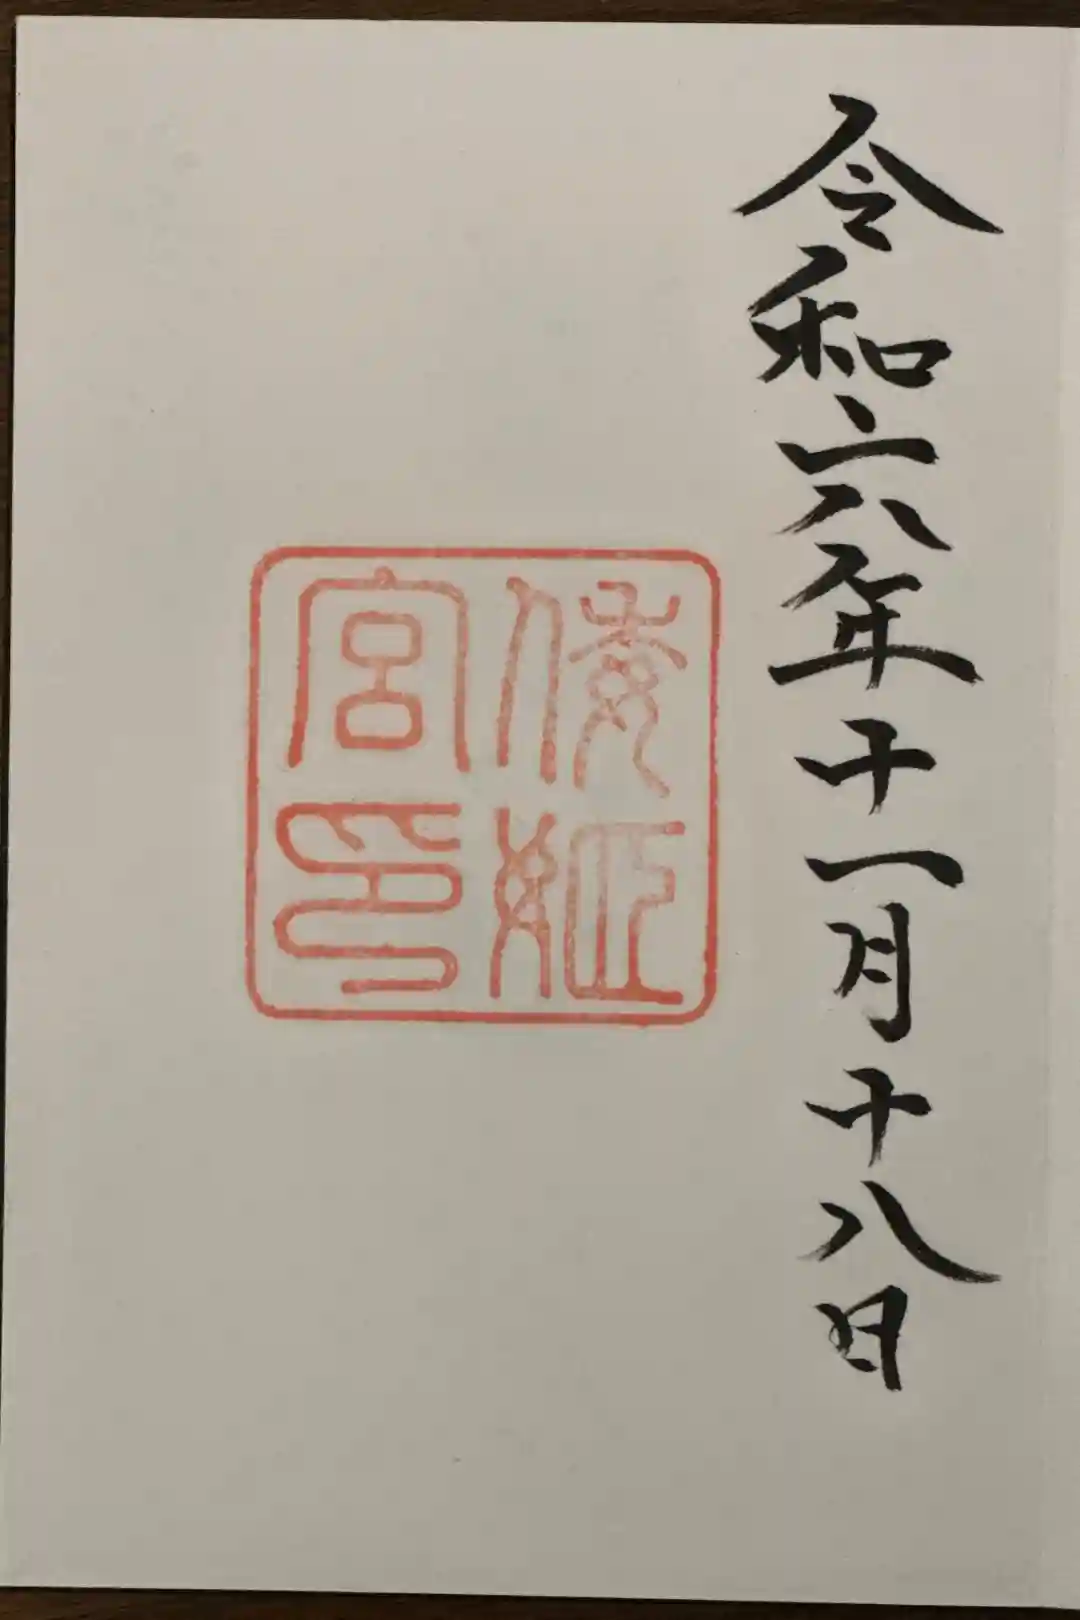 令和六年十一月十八日
倭姫
宮印